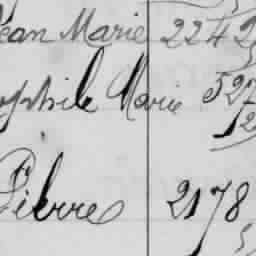 Jean Marie 2242
ophile Marie 527
12
Pierre 2178